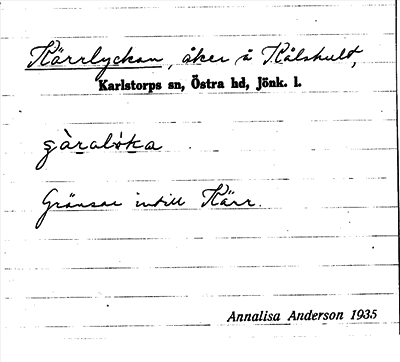 Kärrlyckan, åker å Kålshult,
Karlstorps sn, Östra hd, Jönk. l.
Gränsar intill Kärr.
Annalisa Anderson 1935